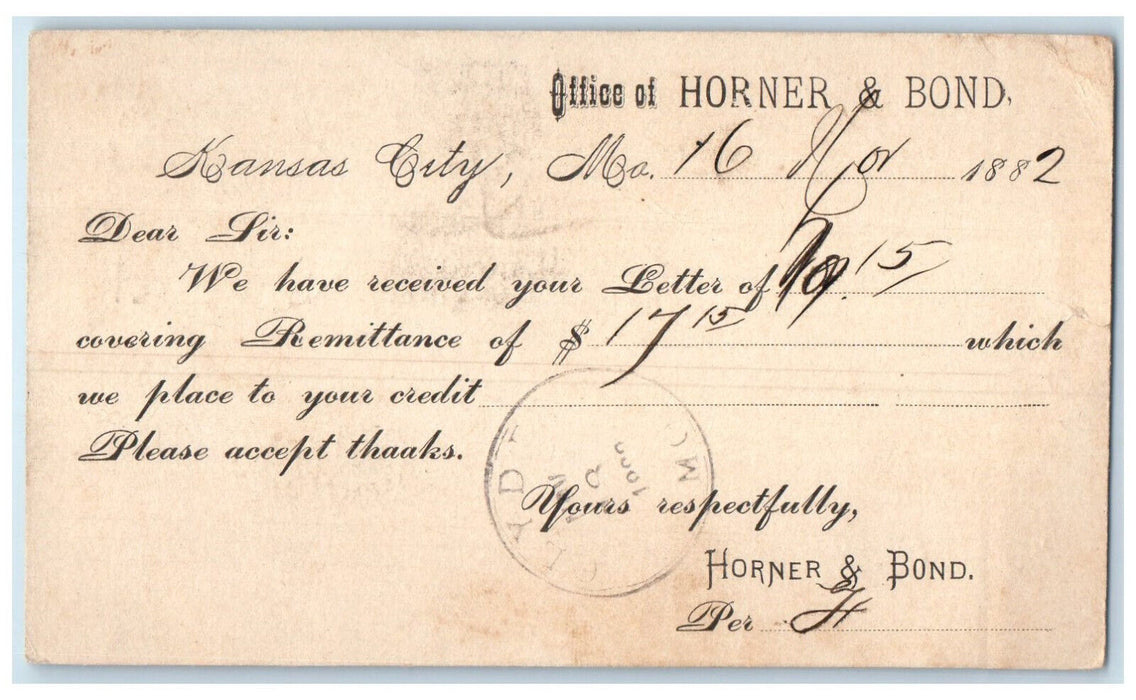 Office of HORNER & BOND,
Kansas City, Mo. 16 Nov 1882
Dear Sir:
We have received your Letter of 15
covering Remittance of $ 17 15 which
we place to your credit
Please accept thaaks.
Yours respectfully,
HORNER & BOND.
Per H
CLYDE MO